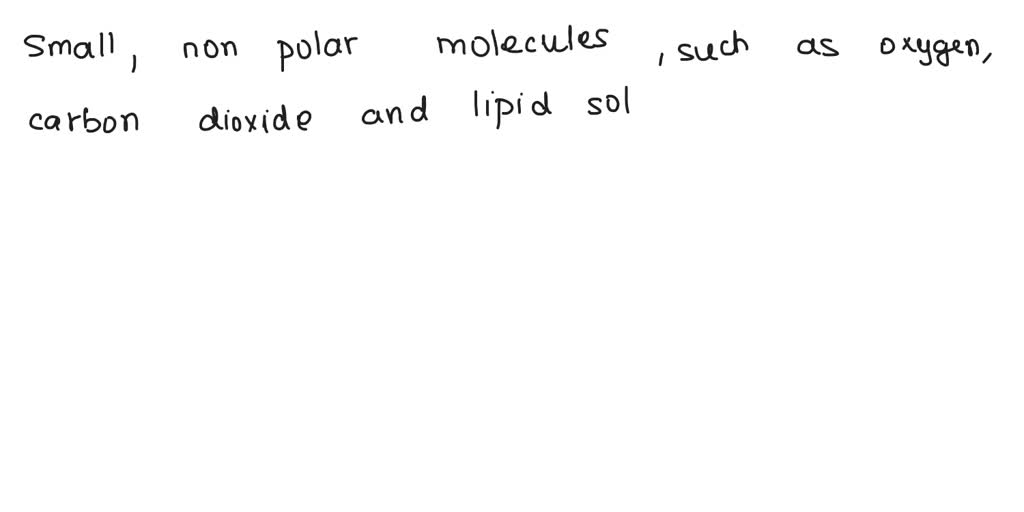 Small, non polar molecules, such as oxygen,
carbon dioxide and lipid sol